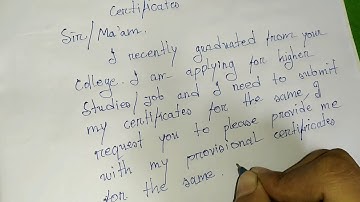 Certificates
Sir/Ma'am.
I recently graduated from your
College. I am applying for higher
Studies/job and I need to submit
my certificates for the same. I
request you to please provide me
with my provisional certificates
for the same.